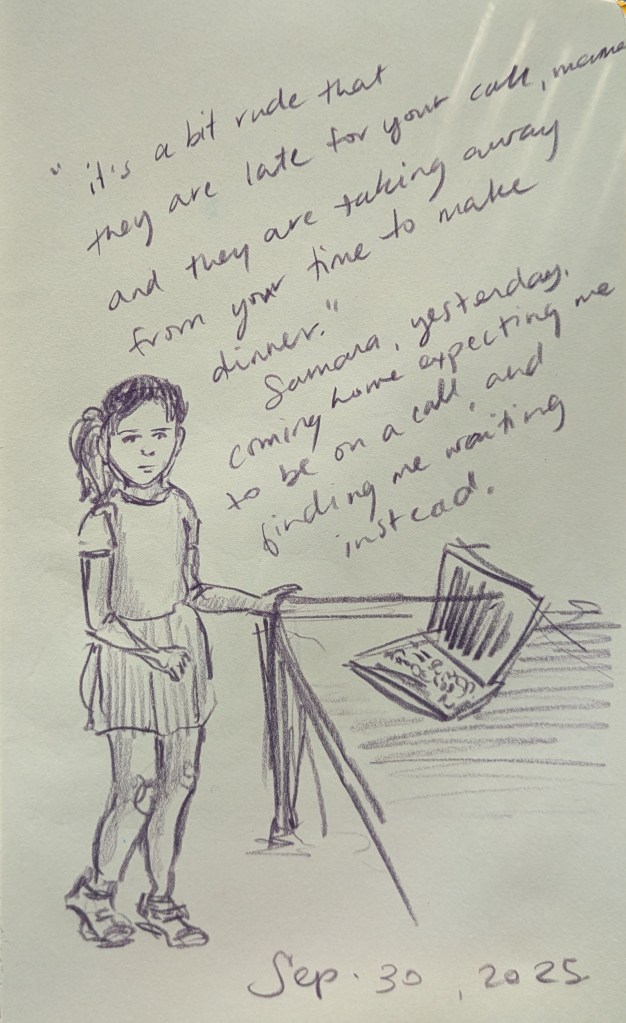 "it's a bit rude that
they are late for your call, mama
and they are taking away
from your time to make
dinner."
Samara, yesterday,
coming home expecting me
to be on a call, and
finding me waiting
instead.
Sep. 30, 2025